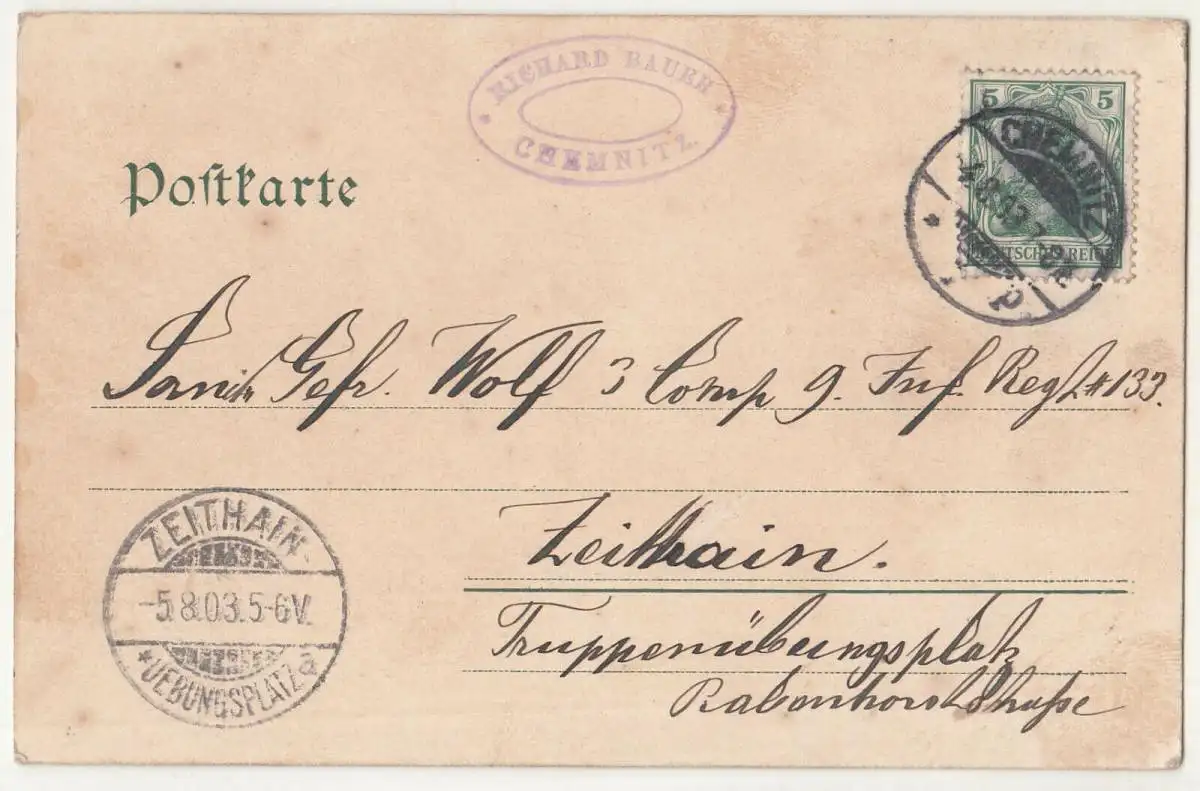 RICHARD BAUER
* *
CHEMNITZ.
5 5
DEUTSCHES REICH
CHEMNITZ
* * p.
Poſtkarte
Sanit. Gefr. Wolf 3 Comp 9. Inf. Regt. # 133.
Zeithain.
Truppenübungsplatz
Rabenhorststraße
ZEITHAIN-
-5.8.03.5-6V.
* UEBUNGSPLATZ a